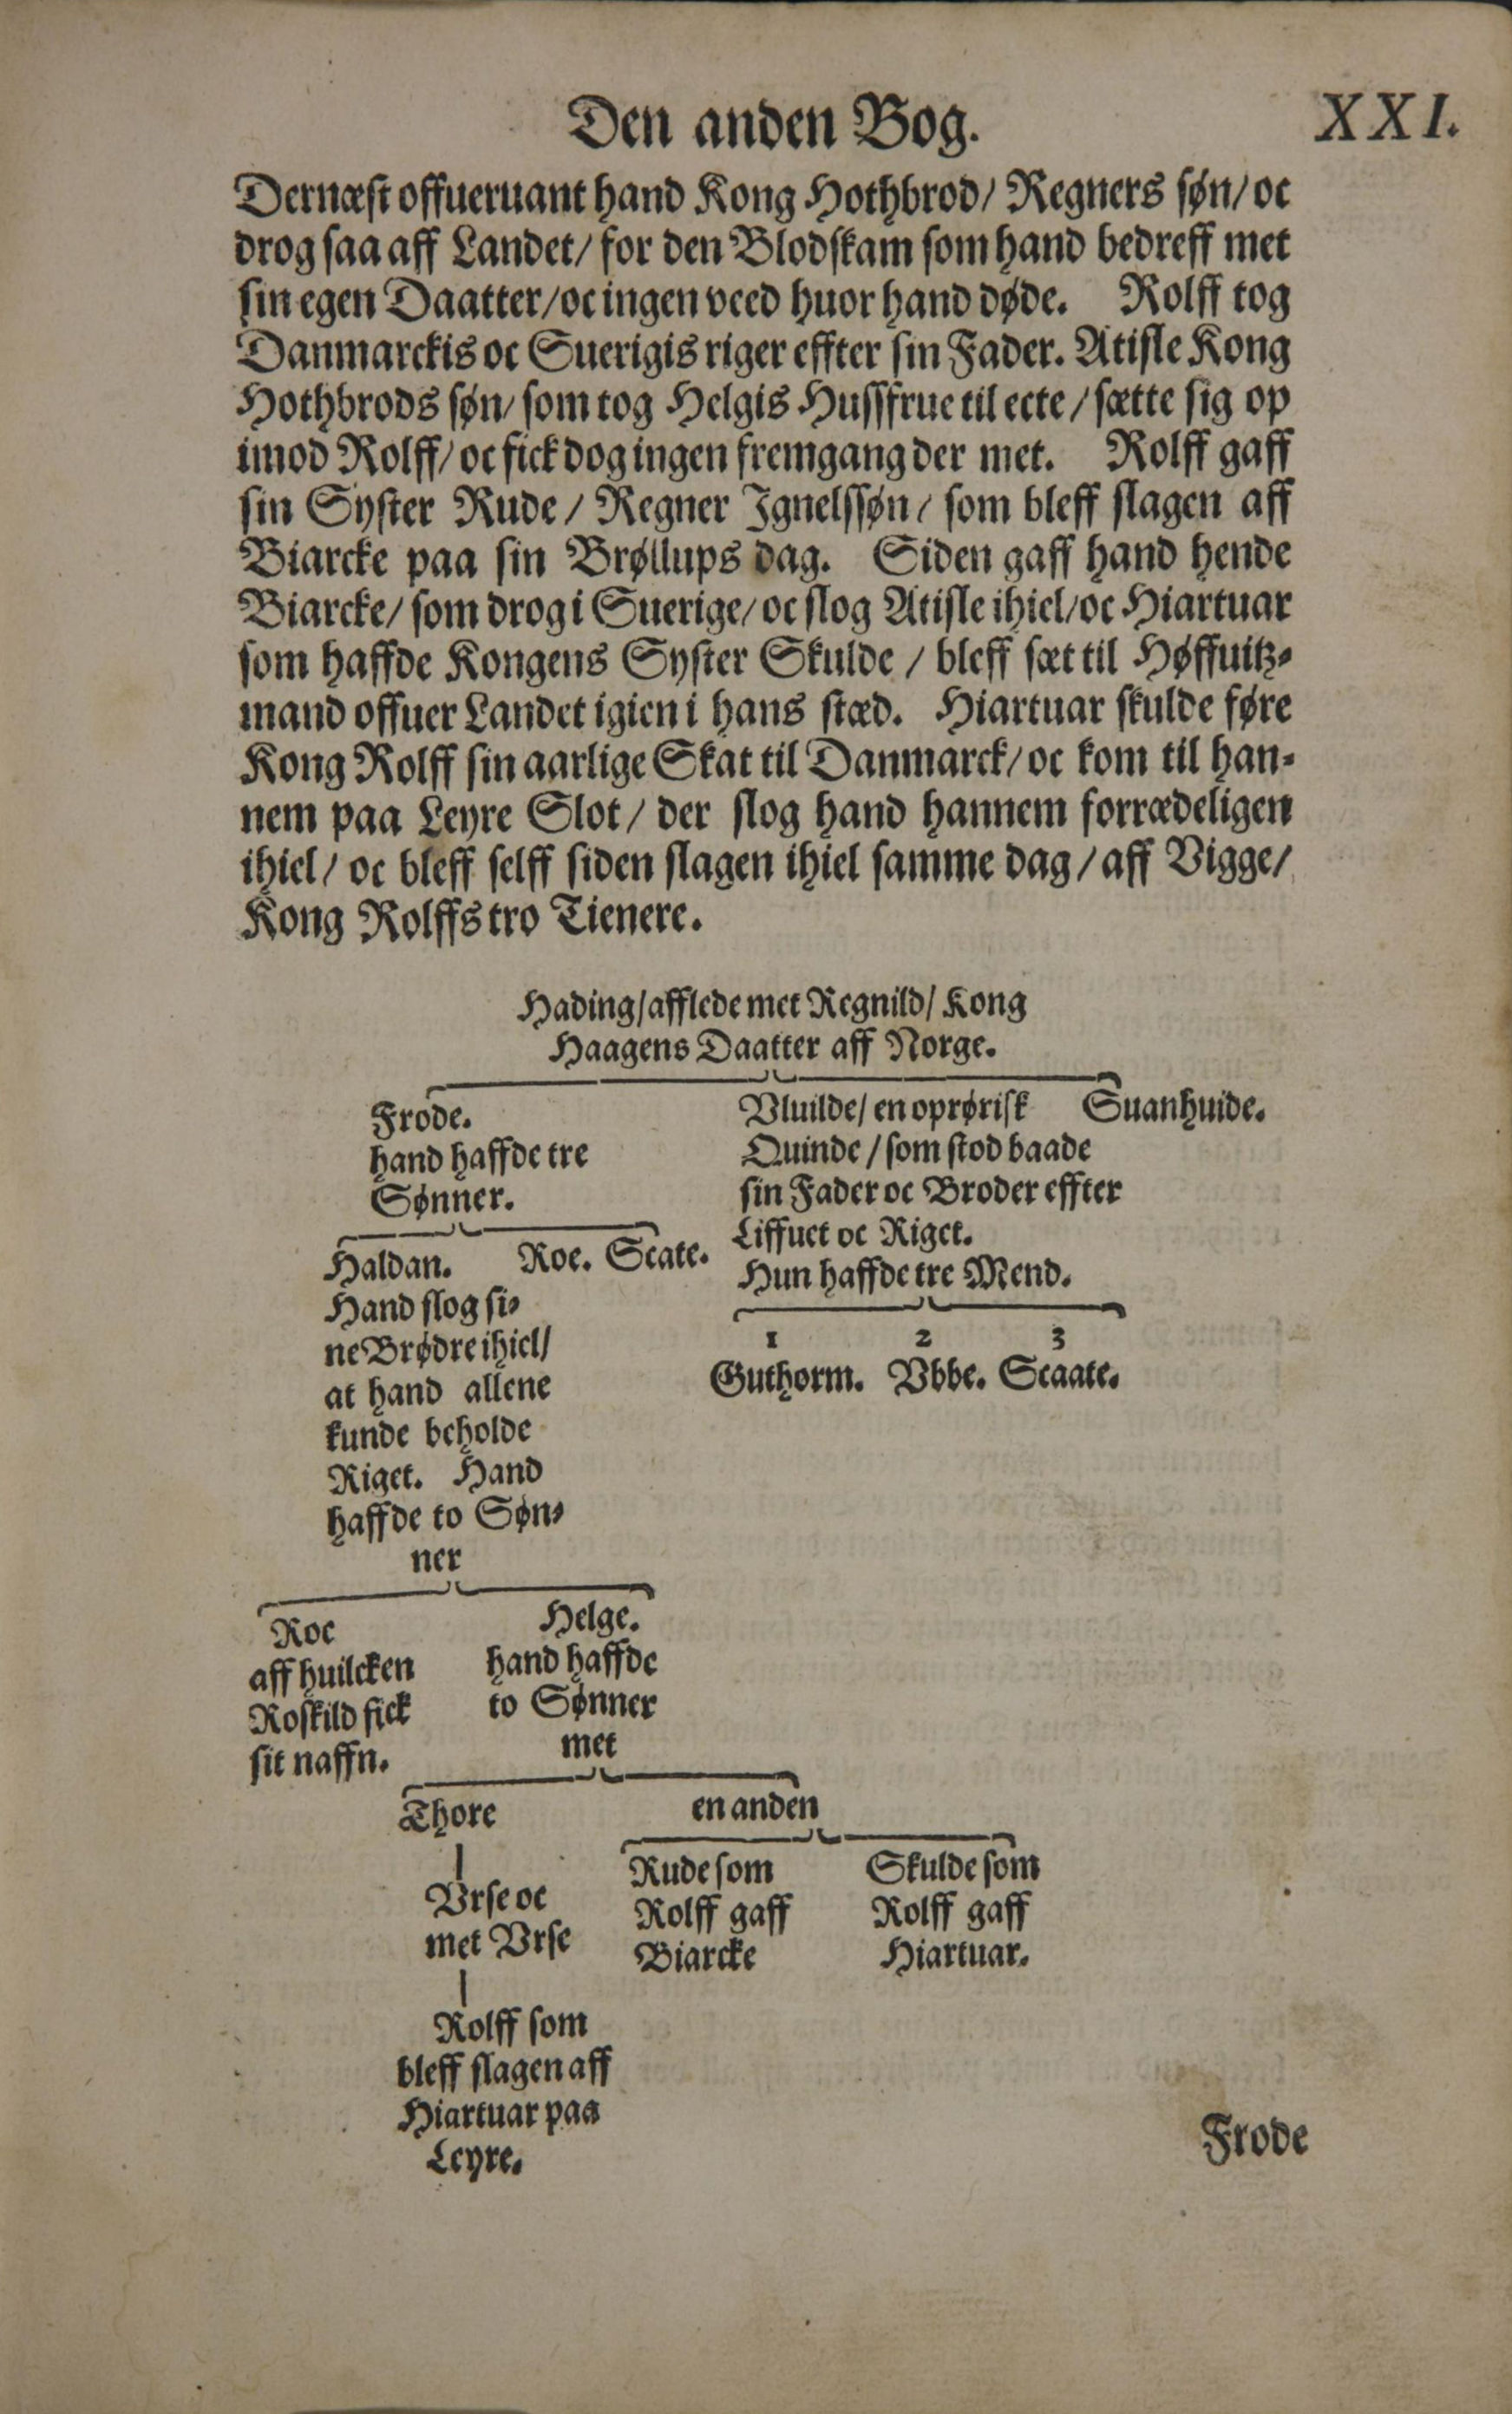 Den anden Bog.
XXI.
Dernæst offueruant hand Kong Hothbrod/ Regners søn/ oc
drog saa aff Landet/ for den Blodskam som hand bedreff met
sin egen Daatter/ oc ingen veed huor hand døde. Rolff tog
Danmarckis oc Suerigis riger effter sin Fader. Atisle Kong
Hothbrods søn/ som tog Helgis Hussfrue til ecte/ sætte sig op
imod Rolff/ oc fick dog ingen fremgang der met. Rolff gaff
sin Syster Rude/ Regner Ignelssøn/ som bleff slagen aff
Biarcke paa sin Brøllups dag. Siden gaff hand hende
Biarcke/ som drog i Suerige/ oc slog Atisle ihiel/ oc Hiartuar
som haffde Kongens Syster Skulde/ bleff sæt til Høffuitz-
mand offuer Landet igien i hans stæd. Hiartuar skulde føre
Kong Rolff sin aarlige Skat til Danmarck/ oc kom til han-
nem paa Leyre Slot/ der slog hand hannem forrædeligen
ihiel/ oc bleff selff siden slagen ihiel samme dag/ aff Vigge/
Kong Rolffs tro Tienere.
Hading/ afflede met Regnild/ Kong
Haagens Daatter aff Norge.
Frode.
hand haffde tre
Sønner.
Vluilde/ en oprørisk
Quinde/ som stod baade
sin Fader oc Broder effter
Liffuet oc Riget.
Hun haffde tre Mend.
Suanhuide.
Haldan.
Hand slog si-
ne Brødre ihiel/
at hand allene
kunde beholde
Riget. Hand
haffde to Søn-
ner
Roe. Scate.
1 2 3
Guthorm. Vbbe. Scaate.
Roe
aff huilcken
Roskild fick
sit naffn.
Helge.
hand haffde
to Sønner
met
Thore
Vrse oc
met Vrse
Rolff som
bleff slagen aff
Hiartuar paa
Leyre.
en anden
Rude som
Rolff gaff
Biarcke
Skulde som
Rolff gaff
Hiartuar.
Frode